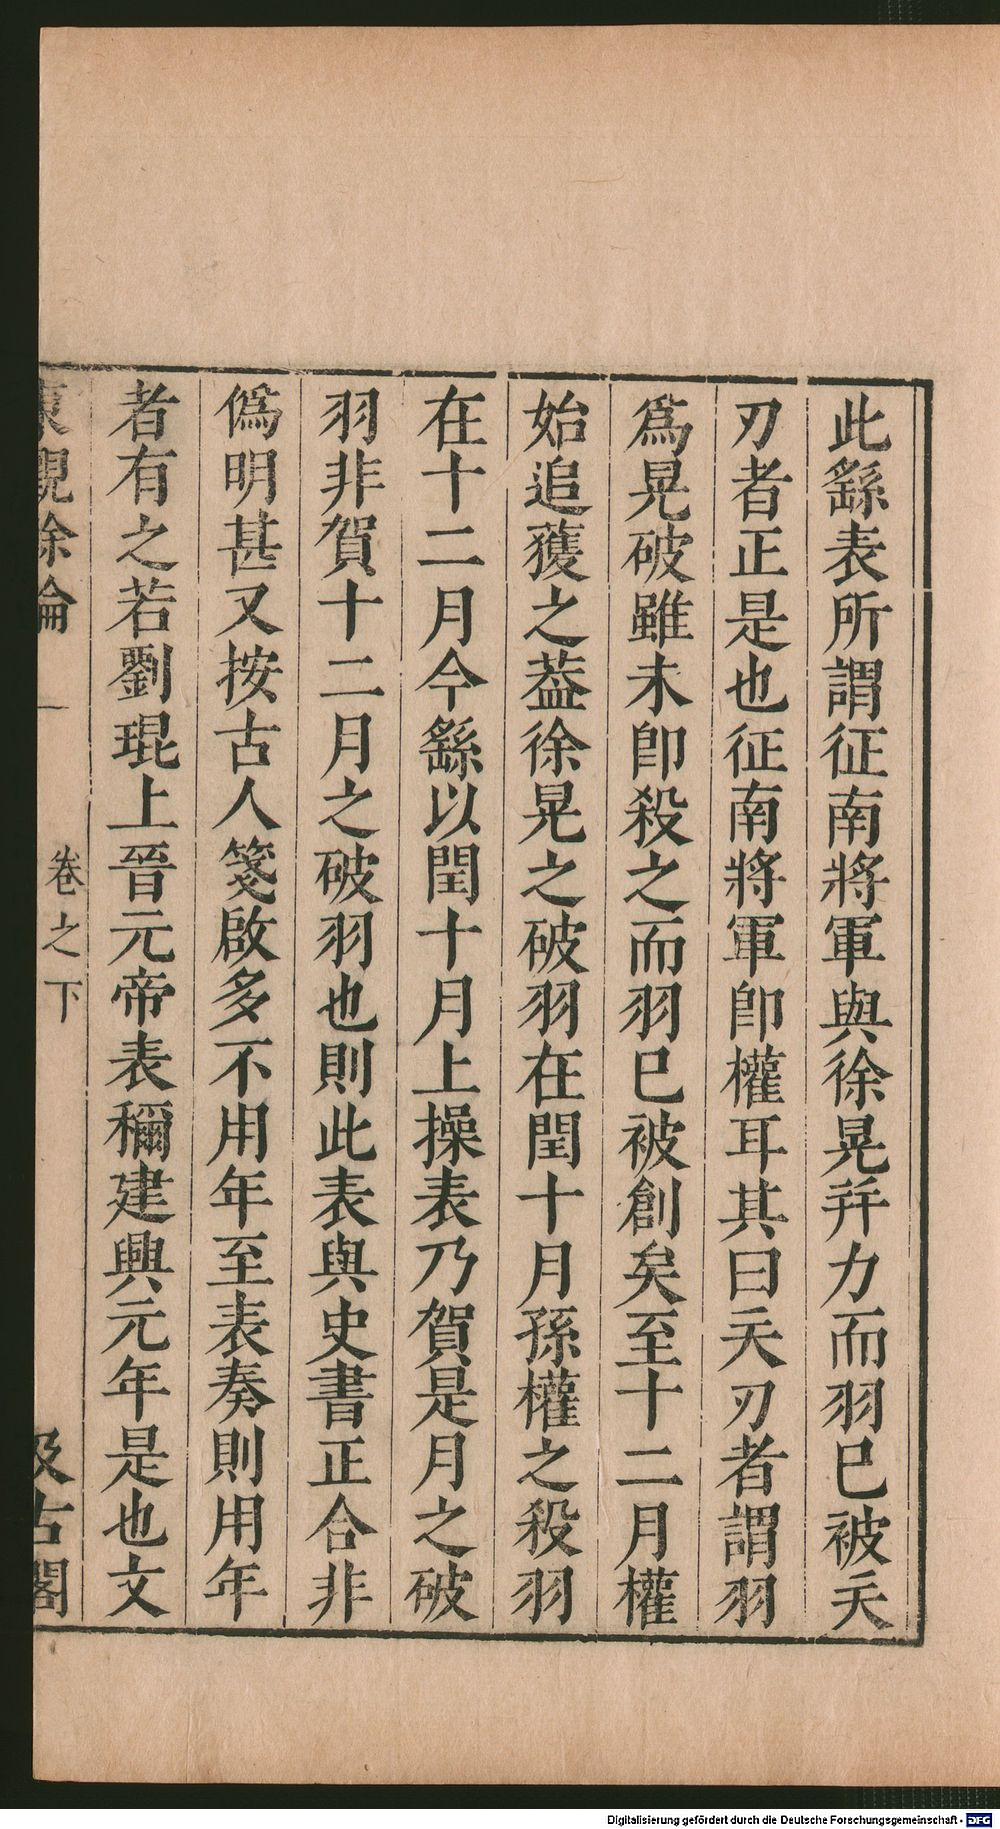 此繇表所謂征南將軍與徐晃并力而羽巳被天
刃者正是也征南將軍卽權耳其曰天刃者謂羽
爲晃破雖未卽殺之而羽巳被創矣至十二月權
始追獲之葢徐晃之破羽在閏十月孫權之殺羽
在十二月今繇以閏十月上操表乃賀是月之破
羽非賀十二月之破羽也則此表與史書正合非
僞明甚又按古人箋啟多不用年至表奏則用年
者有之若劉琨上晉元帝表稱建興元年是也文
東觀餘論 卷之下 汲古閣
Digitalisierung gefördert durch die Deutsche Forschungsgemeinschaft - DFG